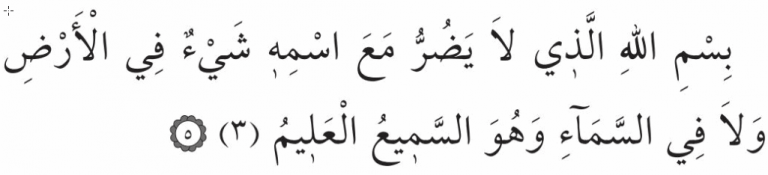 بِسْمِ اللهِ الَّذِي لاَ يَضُرُّ مَعَ اسْمِهِ شَيْءٌ فِي الْأَرْضِ
وَلاَ فِي السَّمَآءِ وَهُوَ السَّمِيعُ الْعَلِيمُ (٣) ٥